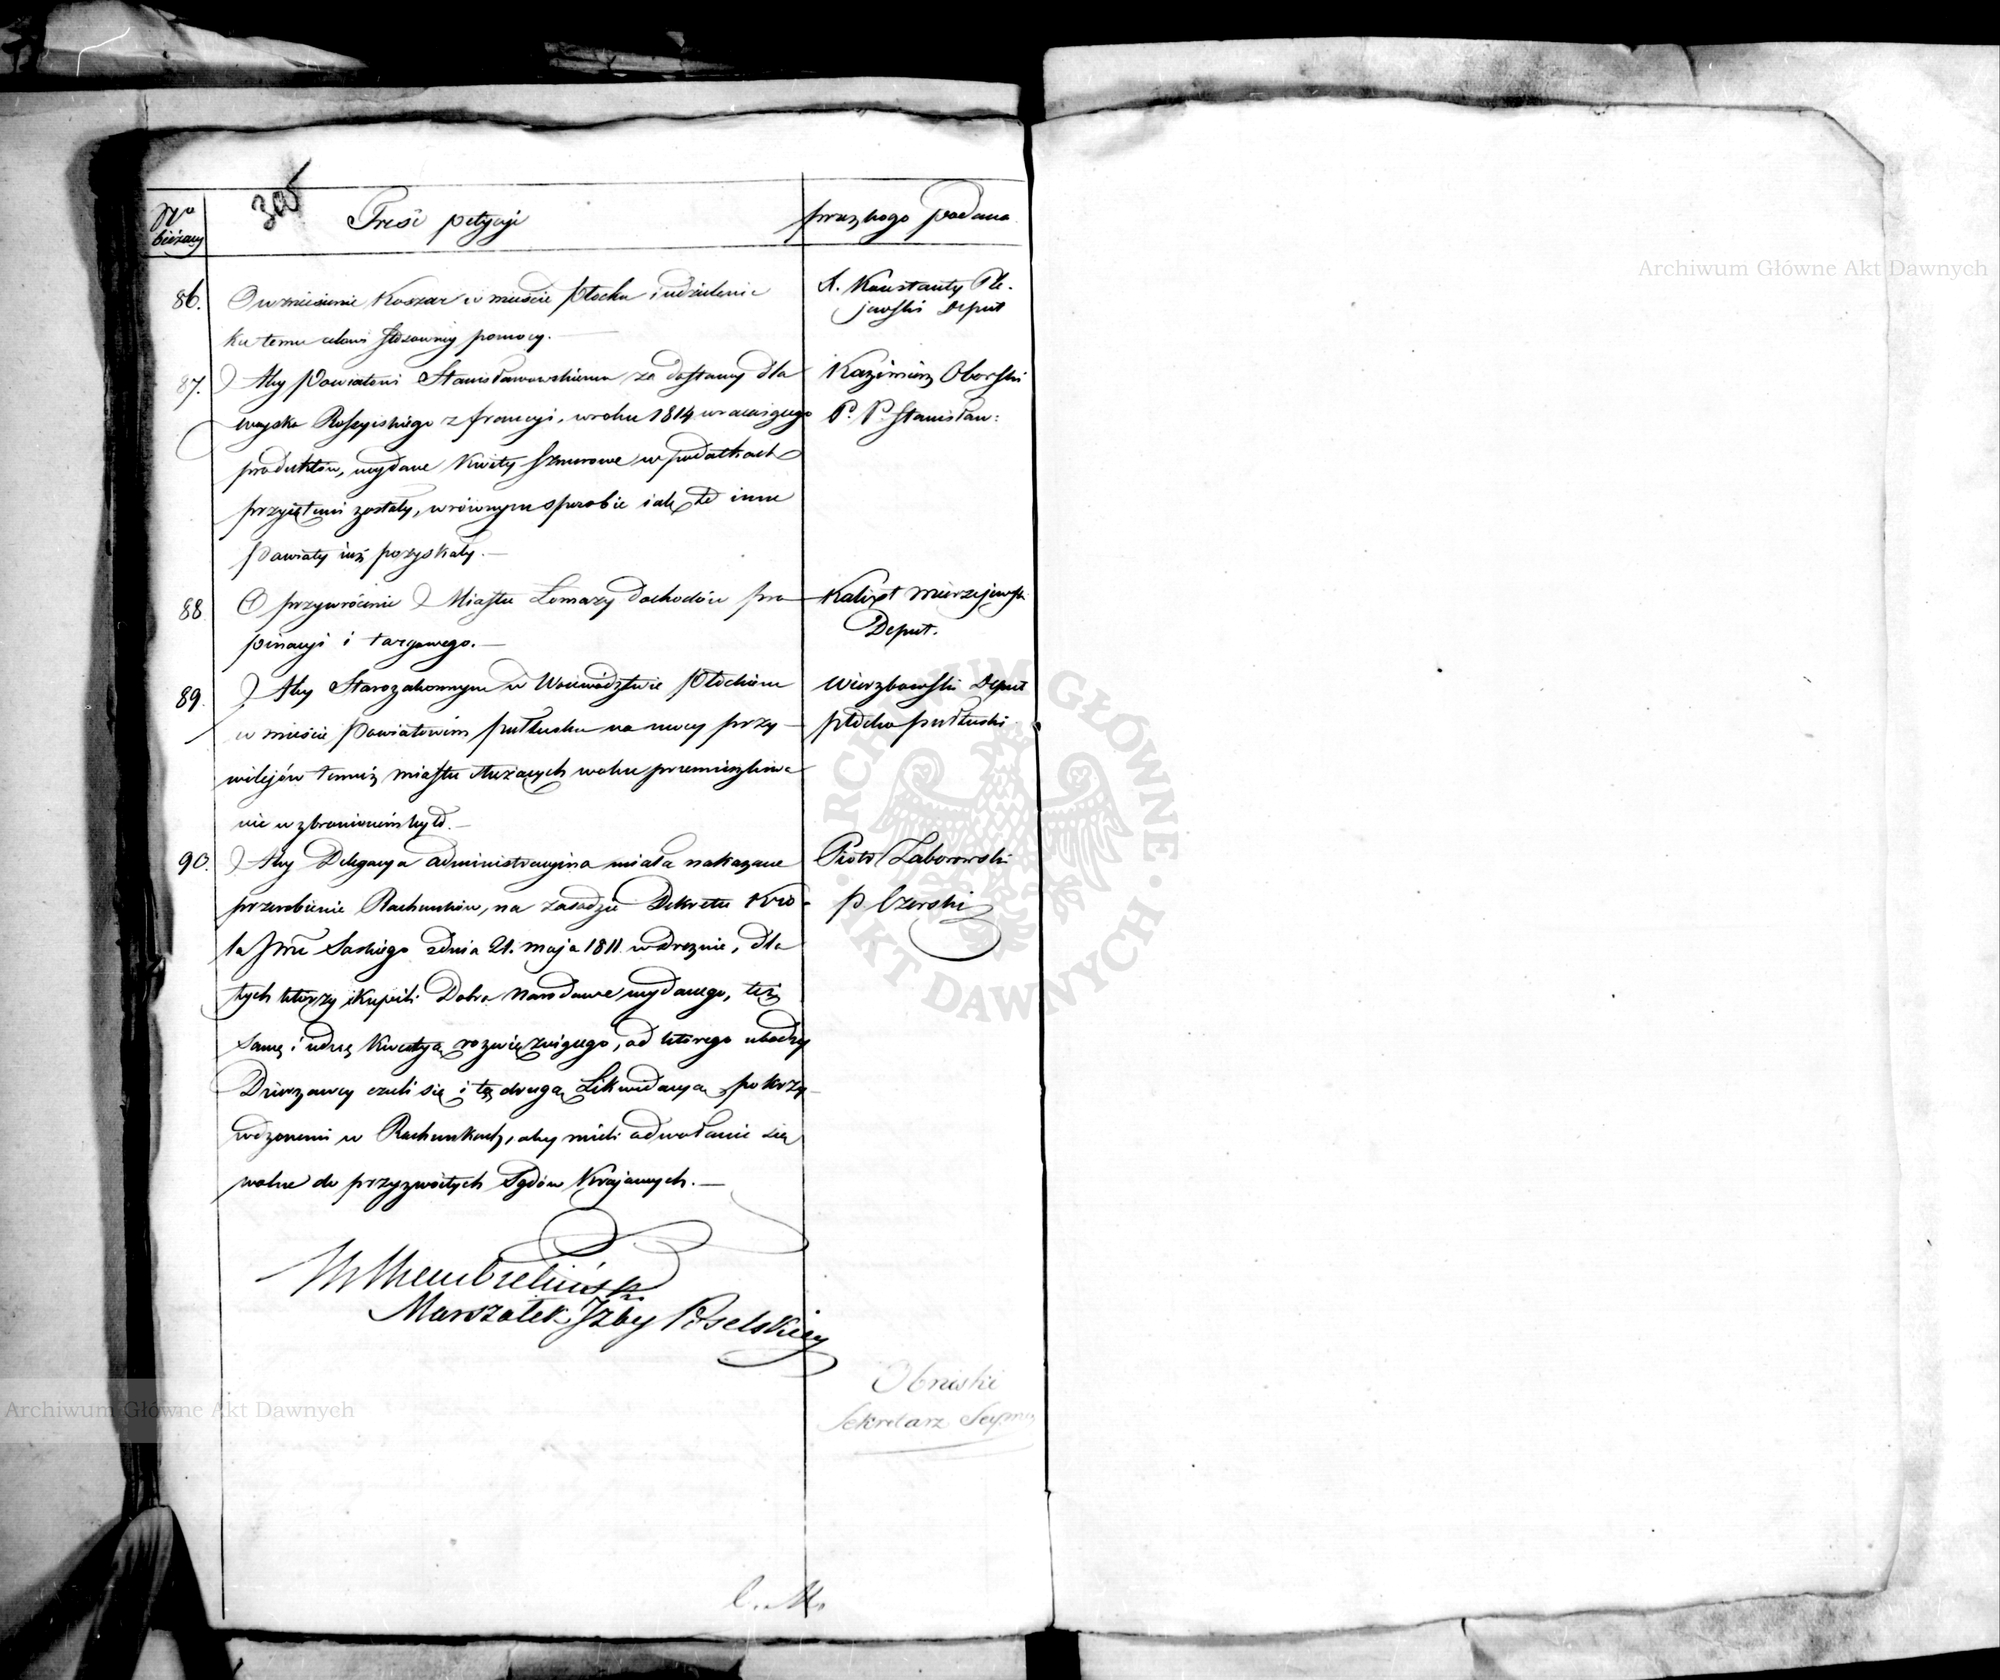 305
Nro bieżący
Treść petycji
przez kogo podana
86. O wzniesienie Koszar w mieście Płocku i udzielenie
ku temu celowi stosownej pomocy. —
X. Konstanty Ple-
jewski Deput
87. Aby Powiatowi Stanisławowskiemu za dostawy dla
wojska Rossyiskiego z francyi, w roku 1814 wracaiącego
produktów, wydane Kwity sznurowe w podatkach
przyiętemi zostały, w równym sposobie iak to inne
Powiaty iuż pozyskały. —
Kazimierz Oborski
P. P. Stanisław:
88 O przywrócenie Miastu Łomazy dochodów pro
pinacyi i targowego. —
Kalixt Mierzejewski
Deput.
89. Aby Starozakonnym w Woiewództwie Płockiem
w mieście Powiatowém Pułtusku na mocy przy-
wilejów temuż miastu służących wolne przemieszkiwa
nie wzbronioném było. —
Wierzbowski Deput
Płocko pułtuski
90. Aby Delegacya administracyina miała nakazane
przerobienie Rachunków, na zasadzie Dekretu Kró-
la Jmci Saskiego z dnia 21. maja 1811 w Dreznie, dla
tych którzy kupili Dobra Narodowe wydanego, też
samę i udną kwestyą rozwiązuiącego, od którego ubodzy
Dzierzawcy czuli się i tą drugą Likwidacyą pokrzy-
wdzonemi w Rachunkach, aby mieli odwołanie się
wolne do przyzwoitych Sądów Krajowych. —
Piotr Zaborowski
P. Czerski
Rembieliński
Marszałek Izby Poselskiey
Obniski
Sekretarz Seymu
C. M.
Archiwum Główne Akt Dawnych
Archiwum Główne Akt Dawnych
ARCHIWUM GŁÓWNE • AKT DAWNYCH •